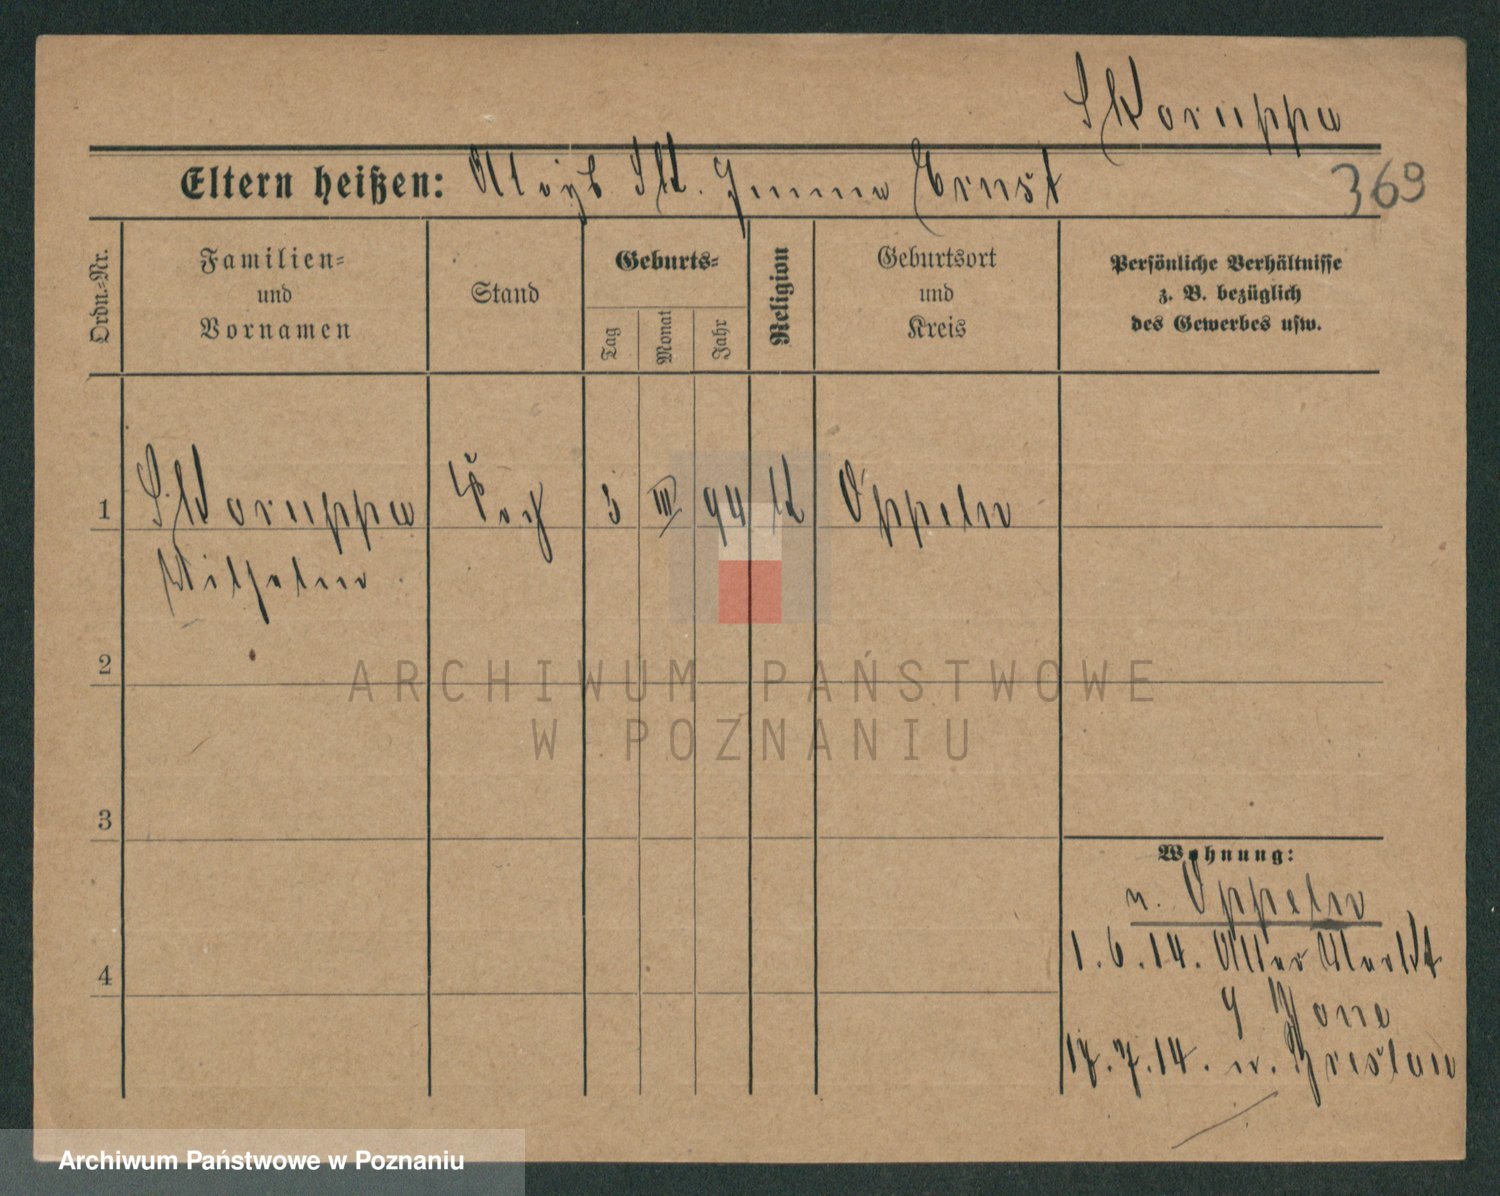 Skoruppa
Eltern heißen: Aloys Sk. Emma Ernst
369
Ordn.-Nr.
Familien-
und
Vornamen
Stand
Geburts-
Tag
Monat
Jahr
Religion
Geburtsort
und
Kreis
Persönliche Verhältnisse
z. B. bezüglich
des Gewerbes usw.
1 Skoruppa Koch III 94 K Oppeln
Wilhelm
2
3
4
Wohnung:
v. Oppeln
1.6.14. Alter Markt
9
17.7.14. n. Breslau
ARCHIWUM PAŃSTWOWE
W POZNANIU
Archiwum Państwowe w Poznaniu